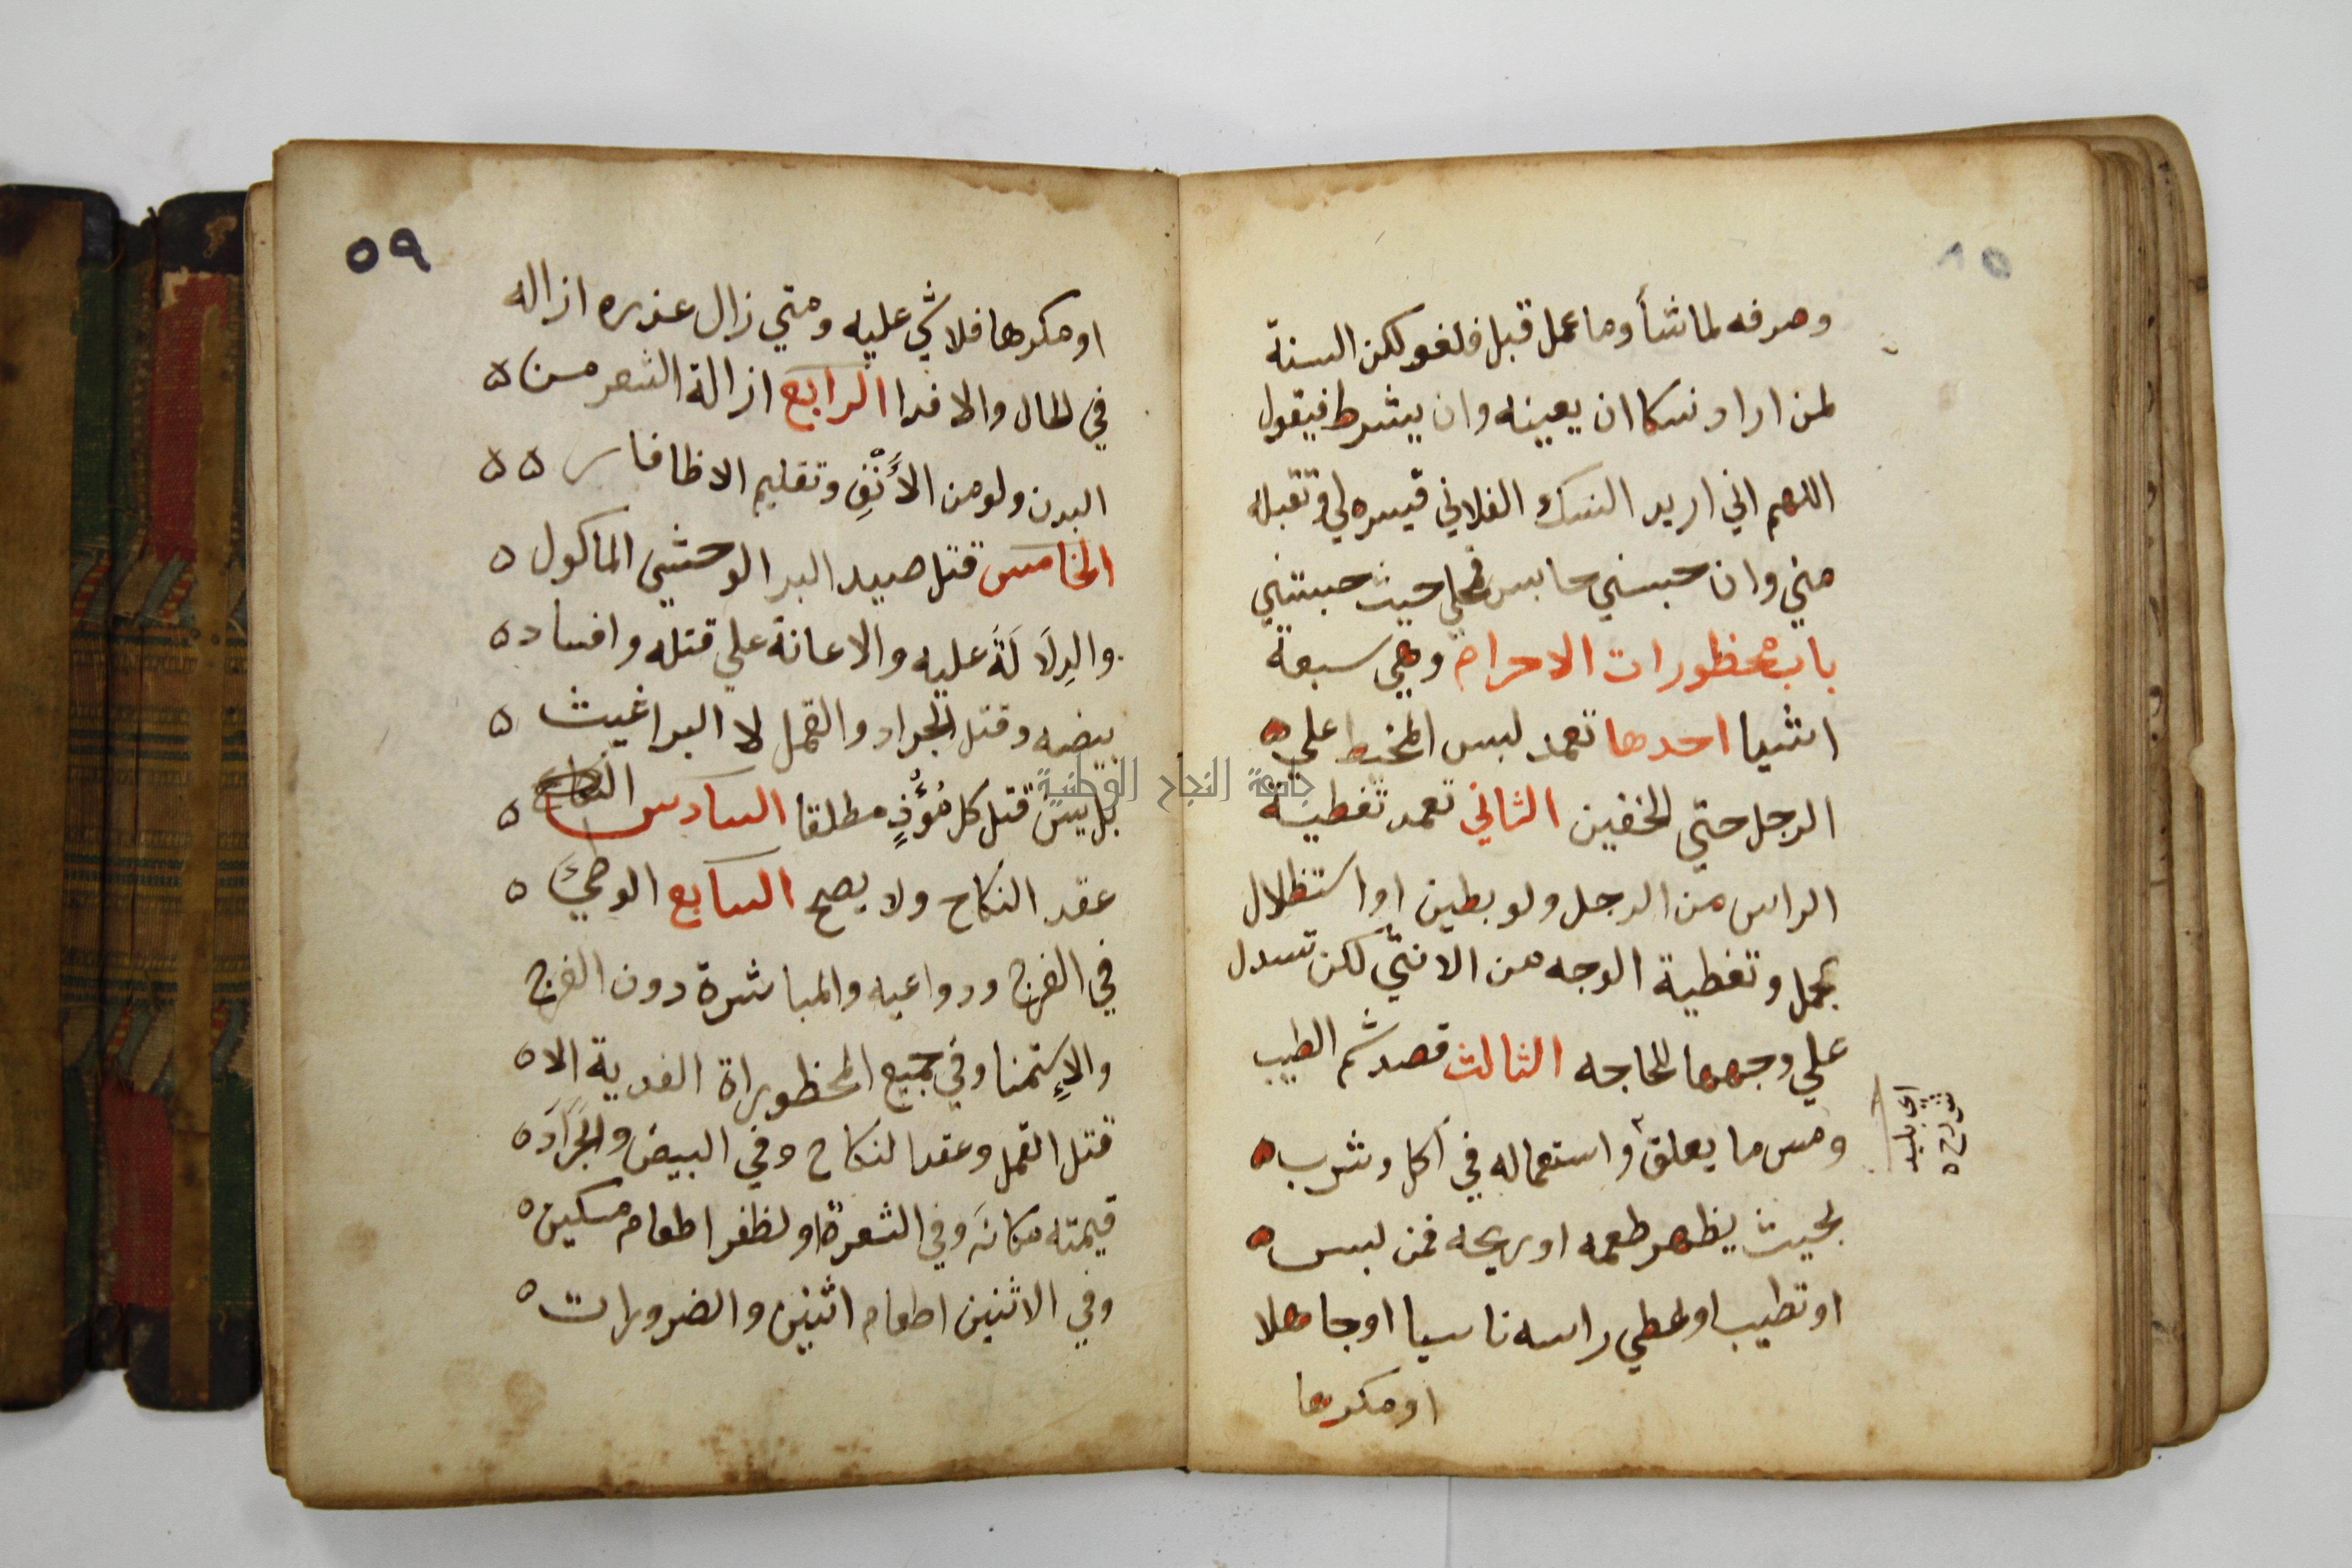 ٥٨
وصرفه لما شأ وما عمل قبل فلغو لكن السنة
لمن اراد نسكا ان يعينه وان يشرط فيقول
اللهم اني اريد النسك الفلاني فيسره لي وتقبله
مني وان حبسني حابس فمحلي حيث حبستني
باب محظورات الاحرام وهي سبعة
اشيا احدها تعمد لبس المخيط علي ه
الرجل حتي الخفين الثاني تعمد تغطية
الراس من الرجل ولو بطين او استظلال
بمحمل وتغطية الوجه من الانثي لكن تسدل
علي وجهها لحاجه الثالث قصد شم الطيب
ومس ما يعلق واستعماله في اكل وشرب ه
بحيث يظهر طعمه او ريحه فمن لبس ه
او تطيب او غطي راسه ناسيا او جاهلا
او مكرها
٥٩
او مكرها فلا شي عليه ومتي زال عذره ازاله
في الحال والا فدا الرابع ازالة الشعر من ه
البدن ولو من الأَنْفِ وتقليم الاظافار ه ه
الخامس قتل صيد البر الوحشي الماكول ه
والدِلَالَةَ عليه والاعانة علي قتله وافساد ه
بيضه وقتل الجراد والقمل لا البراغيث ه
بل يسن قتل كل مُؤْذٍ مطلقا السادس ه
عقد النكاح ولا يصح السابع الوطئ ه
في الفرج ودواعيه والمباشرة دون الفرج
والإستمنا وفي جميع المحظوراة الفدية الا ه
قتل القمل وعقد النكاح وفي البيض والجَرَاد ه
قيمته مكانَه وفي الشعرة او لظفر اطعام مسكين ه
وفي الاثنين اطعام اثنين والضرورات ه
جامعة النجاح الوطنية